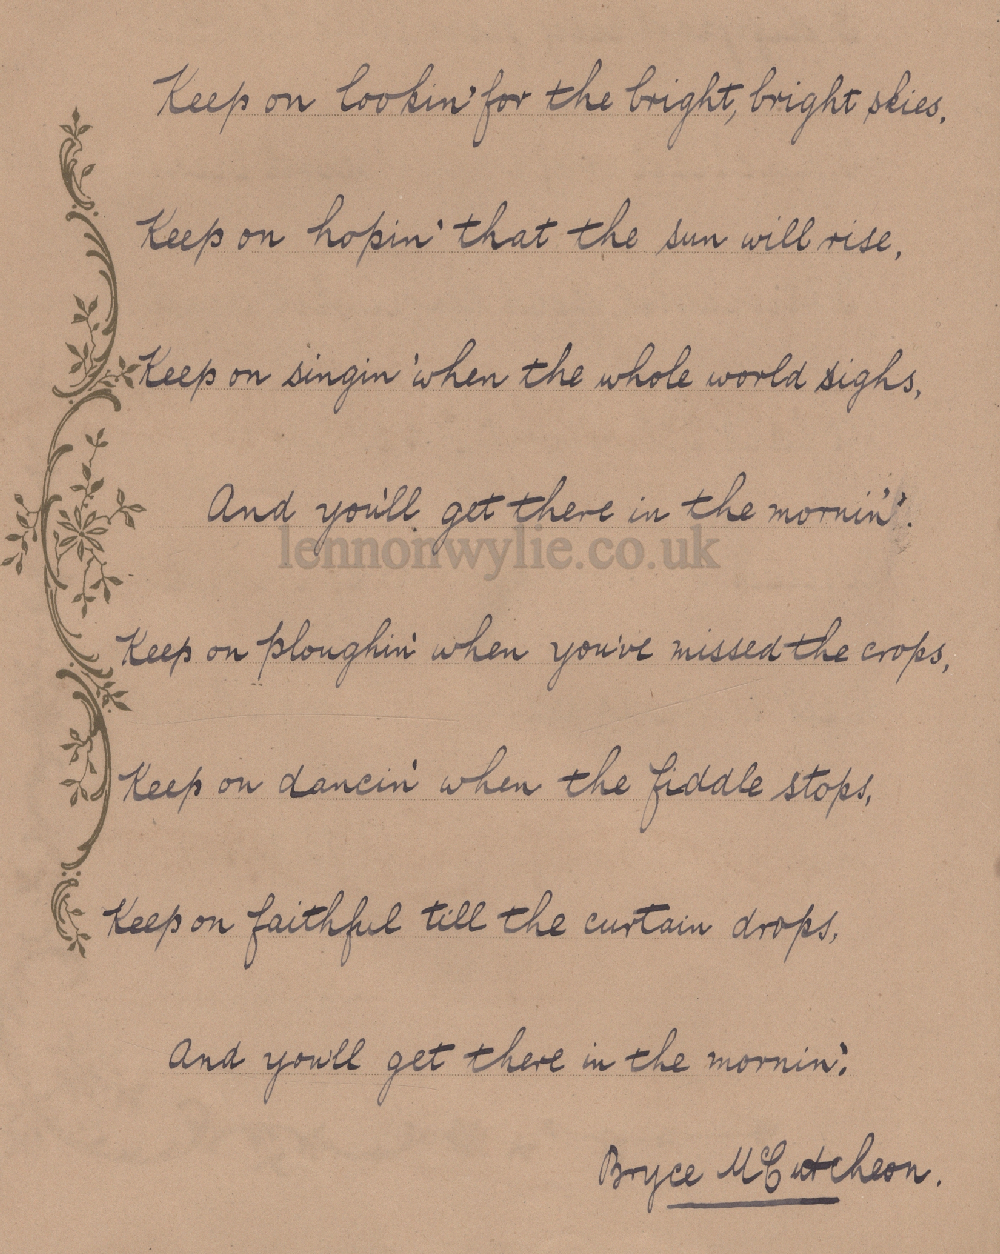 Keep on lookin' for the bright, bright skies,
Keep on hopin' that the sun will rise,
Keep on singin' when the whole world sighs,
And you'll get there in the mornin'.
lennonwylie.co.uk
Keep on ploughin' when you've missed the crops,
Keep on dancin' when the fiddle stops,
Keep on faithful till the curtain drops,
And you'll get there in the mornin'.
Bryce McCutcheon.